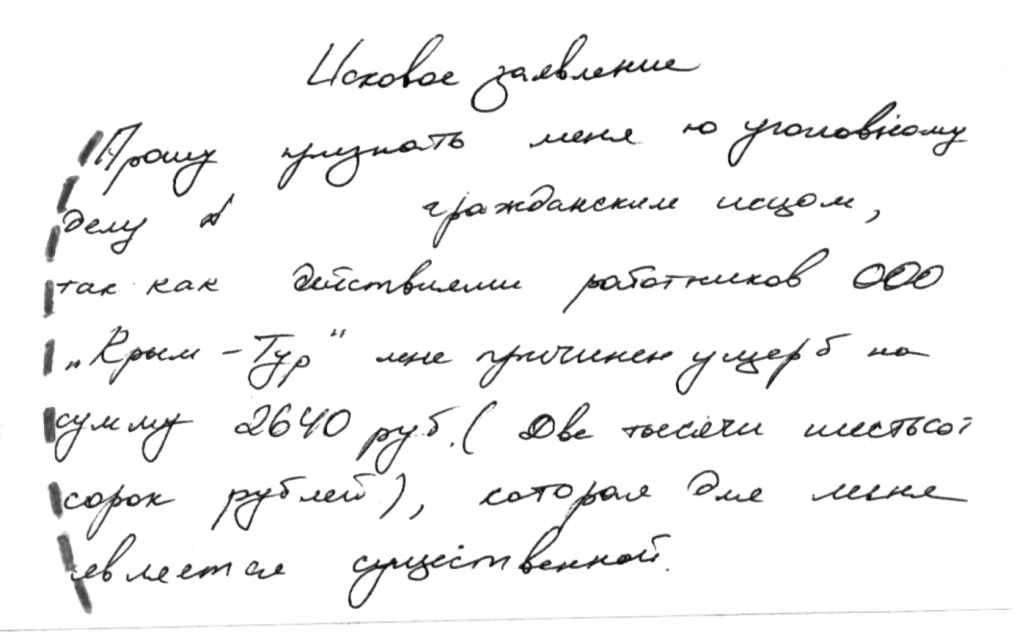 Исковое заявление
Прошу признать меня по уголовному
делу № гражданским истцом,
так как действиями работников ООО
„Крым-Тур“ мне причинен ущерб на
сумму 2640 руб. (Две тысячи шестьсот
сорок рублей), которая для меня
является существенной.